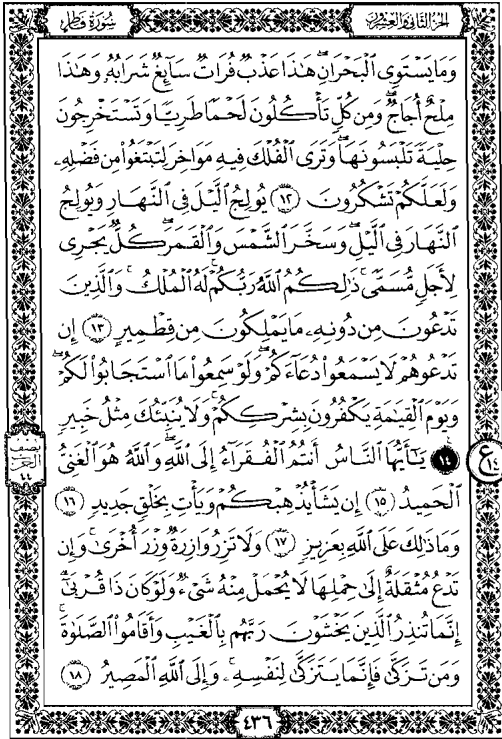 الجزء الثاني والعشرون
سورة فاطر
وَمَا يَسْتَوِي الْبَحْرَانِ هَٰذَا عَذْبٌ فُرَاتٌ سَائِغٌ شَرَابُهُ وَهَٰذَا
مِلْحٌ أُجَاجٌ ۖ وَمِن كُلٍّ تَأْكُلُونَ لَحْمًا طَرِيًّا وَتَسْتَخْرِجُونَ
حِلْيَةً تَلْبَسُونَهَا ۖ وَتَرَى الْفُلْكَ فِيهِ مَوَاخِرَ لِتَبْتَغُوا مِن فَضْلِهِ
وَلَعَلَّكُمْ تَشْكُرُونَ ١٢ يُولِجُ اللَّيْلَ فِي النَّهَارِ وَيُولِجُ
النَّهَارَ فِي اللَّيْلِ وَسَخَّرَ الشَّمْسَ وَالْقَمَرَ ۖ كُلٌّ يَجْرِي
لِأَجَلٍ مُّسَمًّى ۚ ذَٰلِكُمُ اللَّهُ رَبُّكُمْ لَهُ الْمُلْكُ ۚ وَالَّذِينَ
تَدْعُونَ مِن دُونِهِ مَا يَمْلِكُونَ مِن قِطْمِيرٍ ١٣ إِن
تَدْعُوهُمْ لَا يَسْمَعُوا دُعَاءَكُمْ ۖ وَلَوْ سَمِعُوا مَا اسْتَجَابُوا لَكُمْ ۖ
وَيَوْمَ الْقِيَٰمَةِ يَكْفُرُونَ بِشِرْكِكُمْ ۚ وَلَا يُنَبِّئُكَ مِثْلُ خَبِيرٍ
١٤ يَٰأَيُّهَا النَّاسُ أَنتُمُ الْفُقَرَاءُ إِلَى اللَّهِ ۖ وَاللَّهُ هُوَ الْغَنِيُّ
الْحَمِيدُ ١٥ إِن يَشَأْ يُذْهِبْكُمْ وَيَأْتِ بِخَلْقٍ جَدِيدٍ ١٦
وَمَا ذَٰلِكَ عَلَى اللَّهِ بِعَزِيزٍ ١٧ وَلَا تَزِرُ وَازِرَةٌ وِزْرَ أُخْرَىٰ ۚ وَإِن
تَدْعُ مُثْقَلَةٌ إِلَىٰ حِمْلِهَا لَا يُحْمَلْ مِنْهُ شَيْءٌ وَلَوْ كَانَ ذَا قُرْبَىٰ ۗ
إِنَّمَا تُنذِرُ الَّذِينَ يَخْشَوْنَ رَبَّهُم بِالْغَيْبِ وَأَقَامُوا الصَّلَوٰةَ ۚ
وَمَن تَزَكَّىٰ فَإِنَّمَا يَتَزَكَّىٰ لِنَفْسِهِ ۚ وَإِلَى اللَّهِ الْمَصِيرُ ١٨
نصف
الحزب
٤٤
ع
١٠
٤٣٦